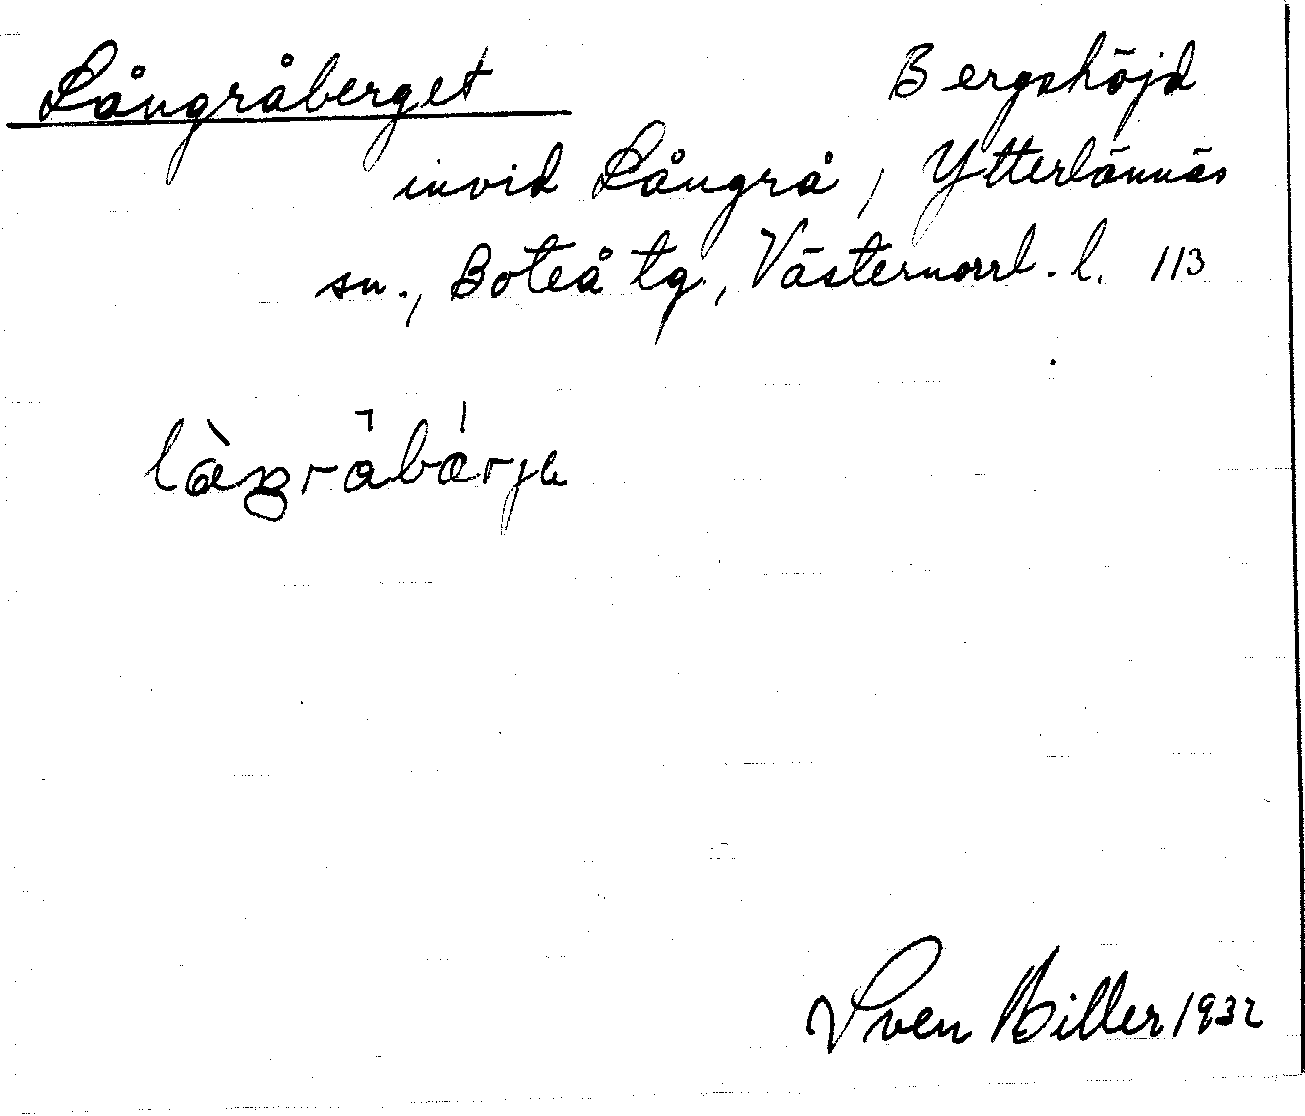 Långråberget Bergshöjd
invid Långrå, Ytterlännäs
sn., Boteå tg., Västernorrl. l. 113
Sven Hiller 1932